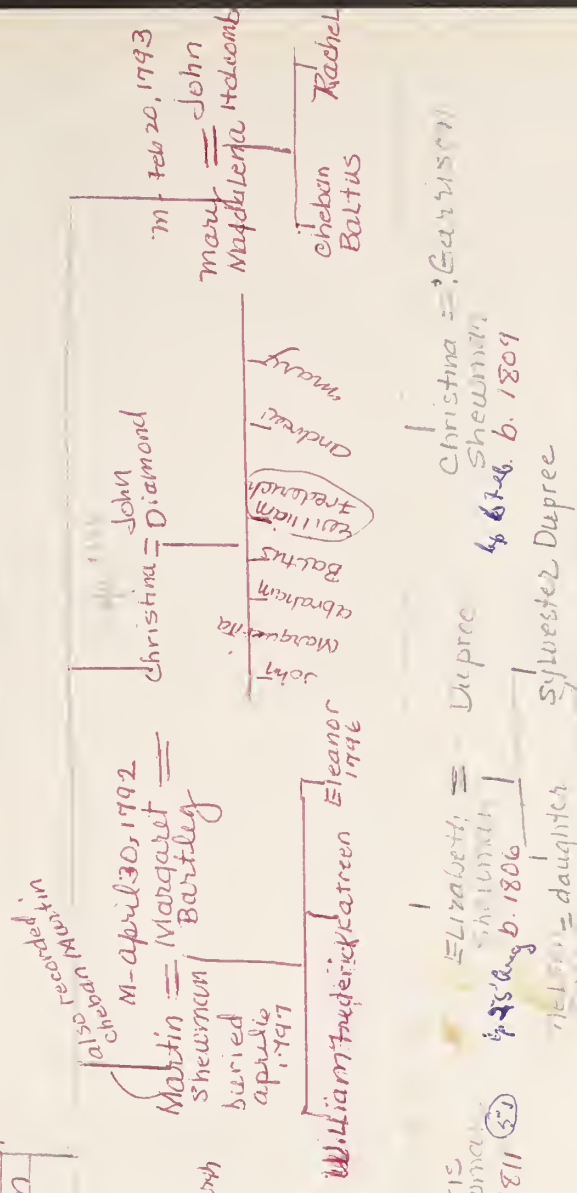 also recorded
cheban Martin
M-april 30, 1792
Martin = Margaret =
Shewman Bartley
buried
aprile
1797
William Frederick Katreen Eleanor
1796
Christina = John
Diamond
John
Marguerita
abraham
Baltus
William
Frederich
andrew
mary
m - Feb 20, 1793
mary = John
Magdalena Holcomb
cheban
Baltus
Rachel
Elizabeth = Dupree
Shewman
b. 1806
= daughter
Sylwester Dupree
Christina = Garrison
Shewman
b. 1809
811